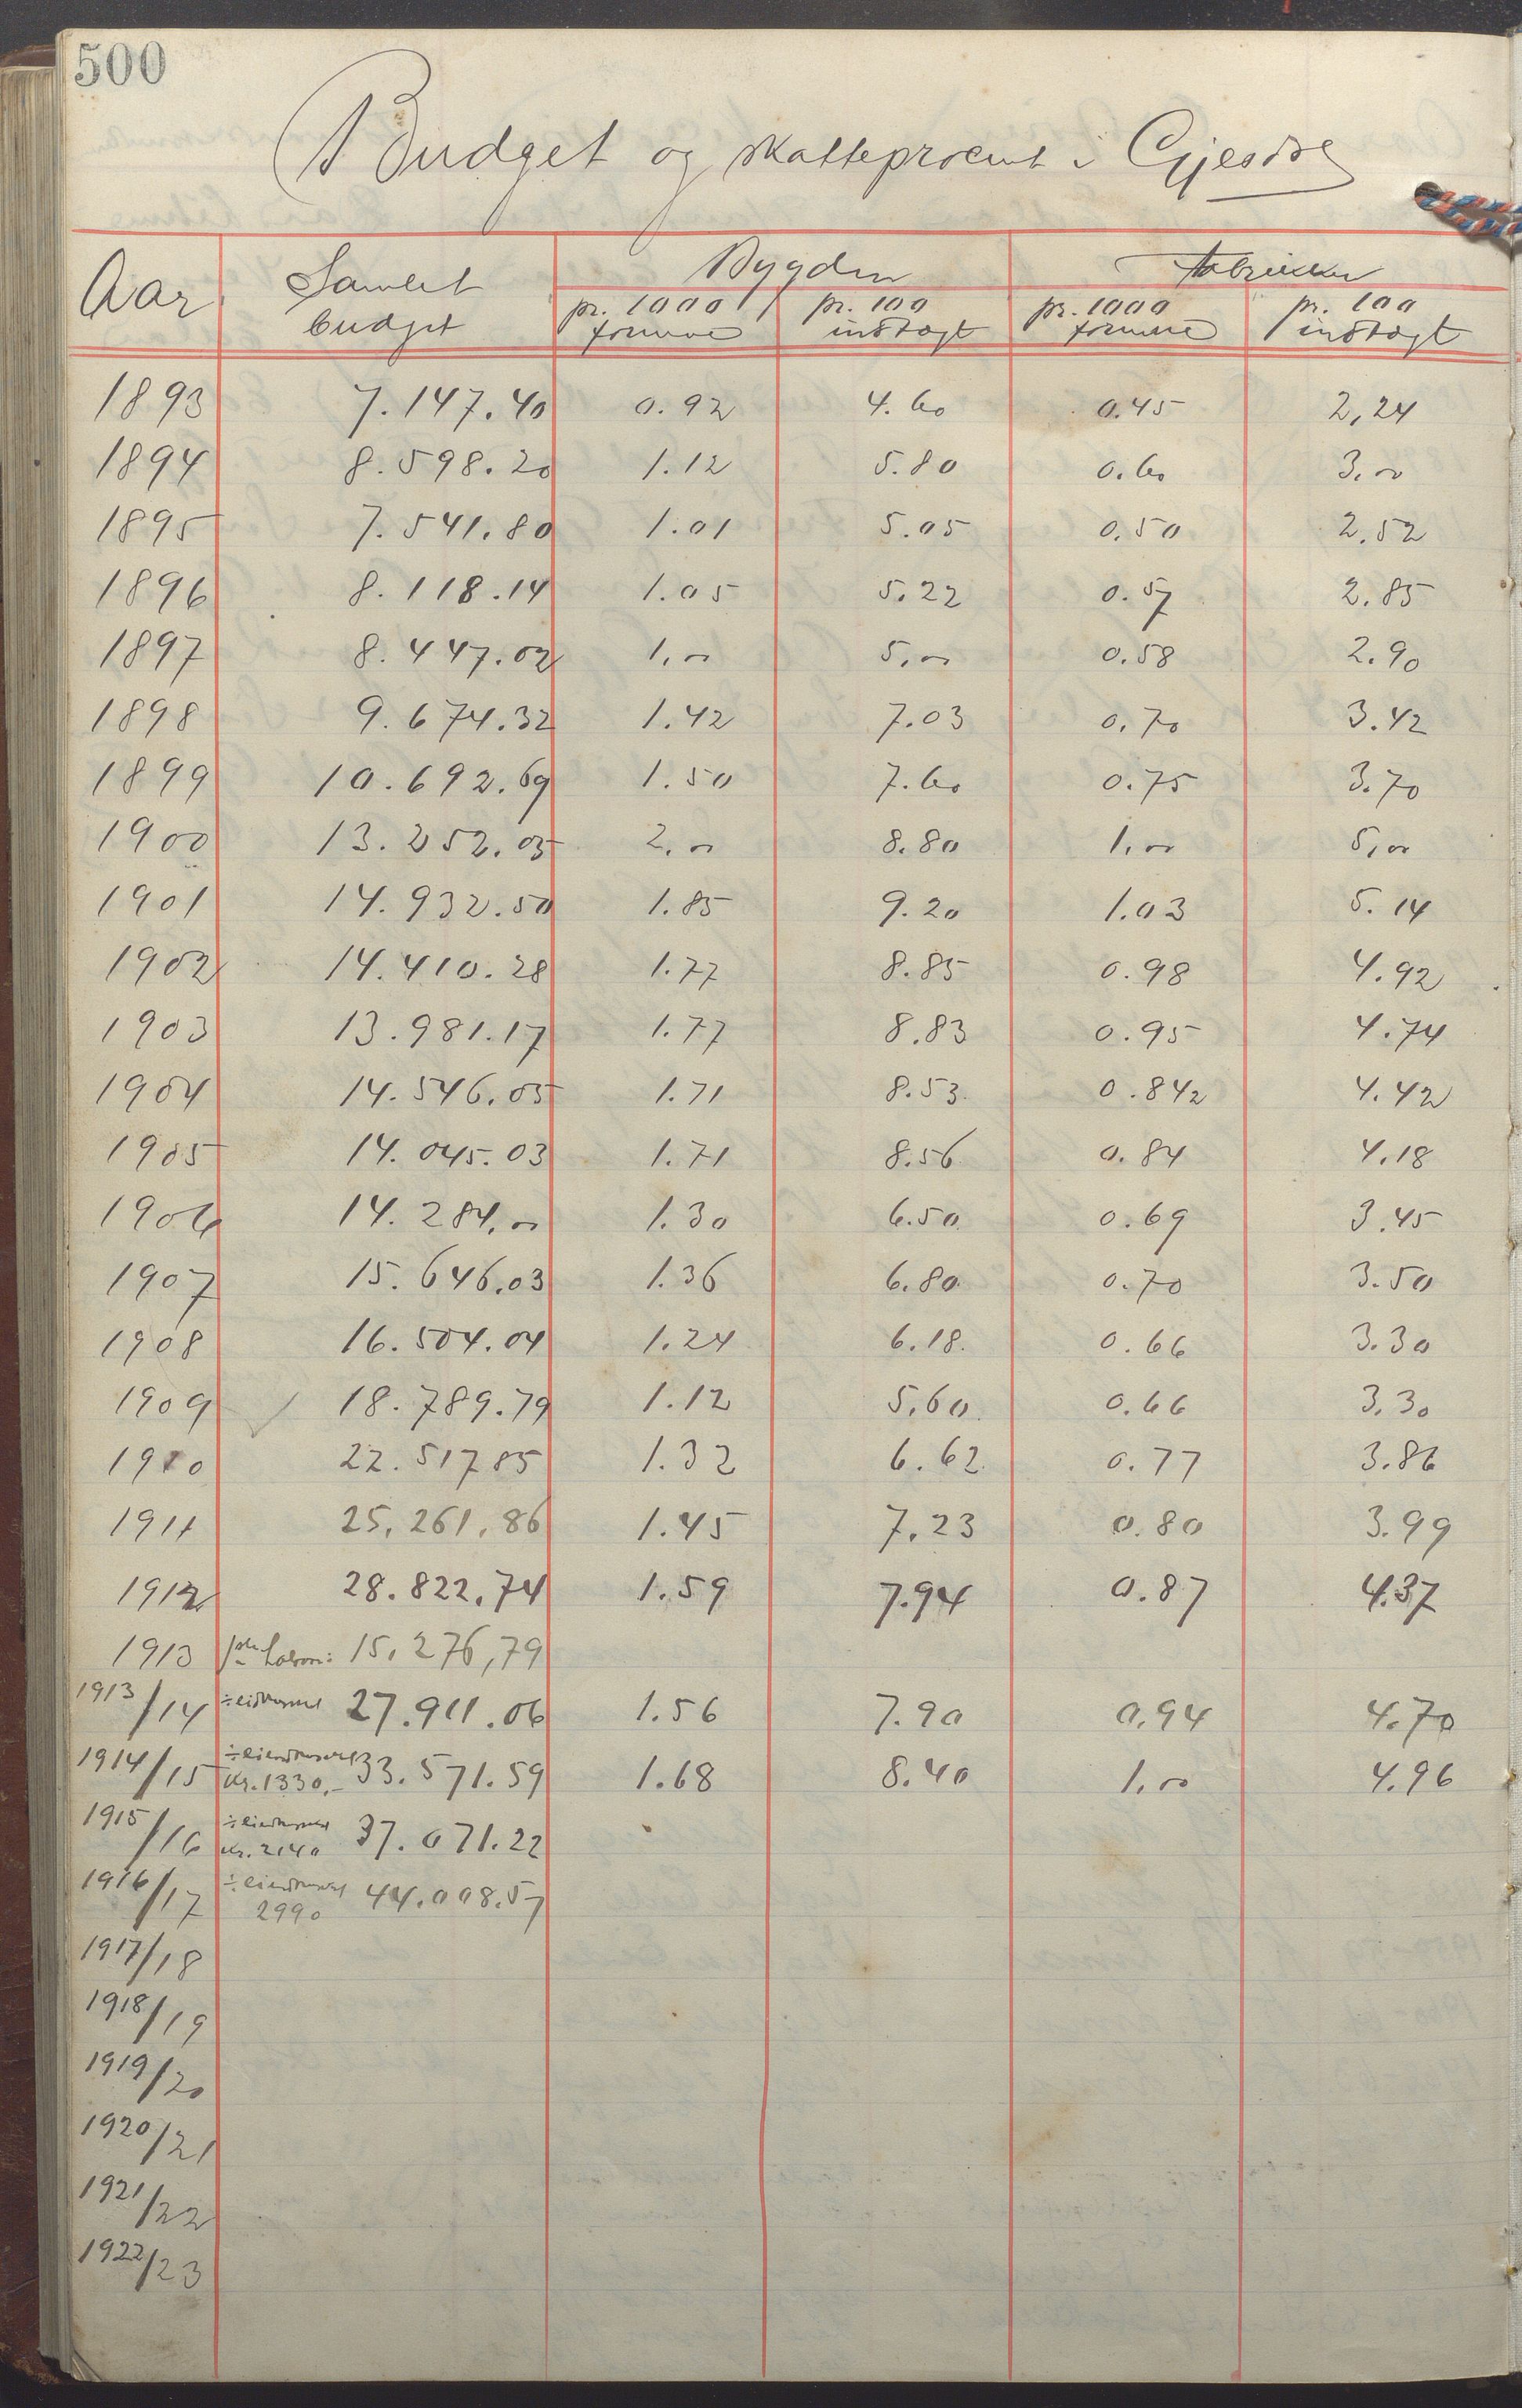 500
Budget og skatteprocent i Gjesdal
Aar Samlet budget Bygden Fabrikker
pr. 1000 formue pr. 100 indtægt pr. 1000 formue pr. 100 indtægt
1893 7.147.40 0.92 4.60 0.45 2,24
1894 8.598.20 1.12 5.80 0.60 3,00
1895 7.541.80 1.01 5.05 0.50 2.52
1896 8.118.14 1.05 5.22 0.57 2.85
1897 8.447.02 1,00 5,00 0.58 2.90
1898 9.674.32 1.42 7.03 0.70 3.42
1899 10.692.69 1.50 7.60 0.75 3.70
1900 13.252.05 2,00 8.80 1,00 5,00
1901 14.932.50 1.85 9.20 1.03 5.14
1902 14.410.28 1.77 8.85 0.98 4.92
1903 13.981.17 1.77 8.83 0.95 4.74
1904 14.546.05 1.71 8.53 0.842 4.42
1905 14.045.03 1.71 8.56 0.84 4.18
1906 14.284,00 1.30 6.50 0.69 3.45
1907 15.646.03 1.36 6.80 0.70 3.50
1908 16.504.04 1.24 6.18 0.66 3.30
1909 18.789.79 1.12 5,60 0.66 3,30
1910 22.517 85 1.32 6.62 0.77 3.86
1911 25,261,86 1.45 7,23 0.80 3.99
1912 28.822,74 1.59 7.94 0.87 4.37
1913 1ste halvaar: 15,276,79
1913/14 27.911.06 1.56 7.90 0.94 4.70
1914/15 Kr. 1330,- 33.571.59 1.68 8.40 1,00 4.96
1915/16 Kr. 2140 37.071.22
1916/17 2990 44.008.57
1917/18
1918/19
1919/20
1920/21
1921/22
1922/23